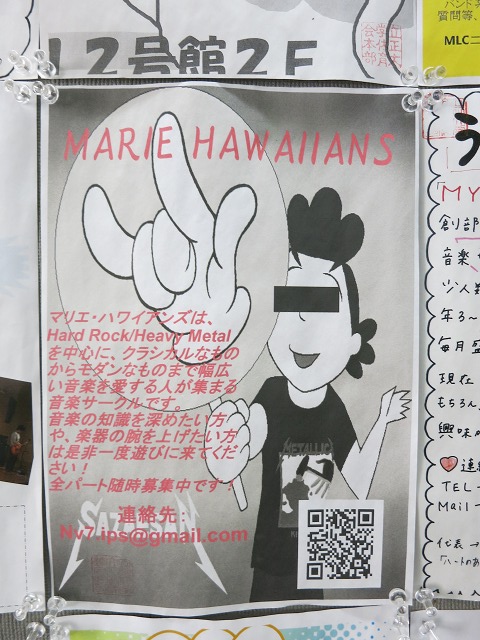 12号館2F
質問等、
MLC二
MARIE HAWAIIANS
マリエ・ハワイアンズは、
Hard Rock/Heavy Metal
を中心に、クラシカルなもの
からモダンなものまで幅広
い音楽を愛する人が集まる
音楽サークルです。
音楽の知識を深めたい方
や、楽器の腕を上げたい方
は是非一度遊びに来てくだ
さい！
全パート随時募集中です！
連絡先：
Nv7.ips@gmail.com
METALLIC
う
「MY
創部
音楽
少人数
年3〜
毎月
現在
もちろん
興味
連絡
TEL
Mail
代表
「ハートのあ